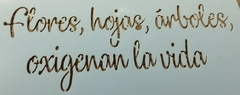 flores, hojas, árboles,
oxigenan la vida